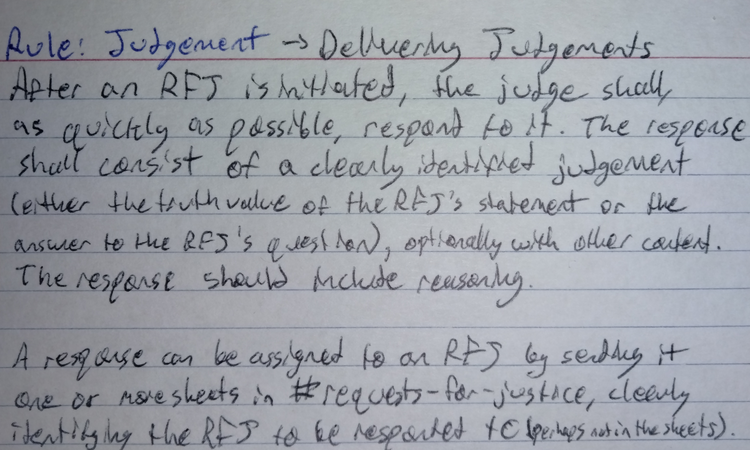 Rule: Judgement → Delivering Judgements
After an RFJ is initiated, the judge shall,
as quickly as possible, respond to it. The response
shall consist of a clearly identified judgement
(either the truth value of the RFJ's statement or the
answer to the RFJ's question), optionally with other content.
The response should include reasoning.
A response can be assigned to an RFJ by sending it
one or more sheets in #requests-for-justice, clearly
identifying the RFJ to be responded to (perhaps not in the sheets).